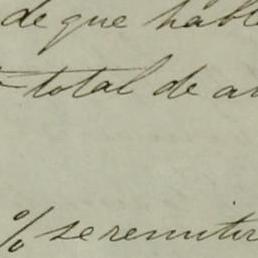 de que habl
total de a
% se remitir